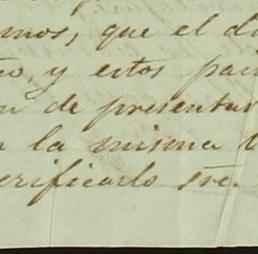 mos, que el di
to, y estos pai
n de presentar
n la misma
erificarlo sre.